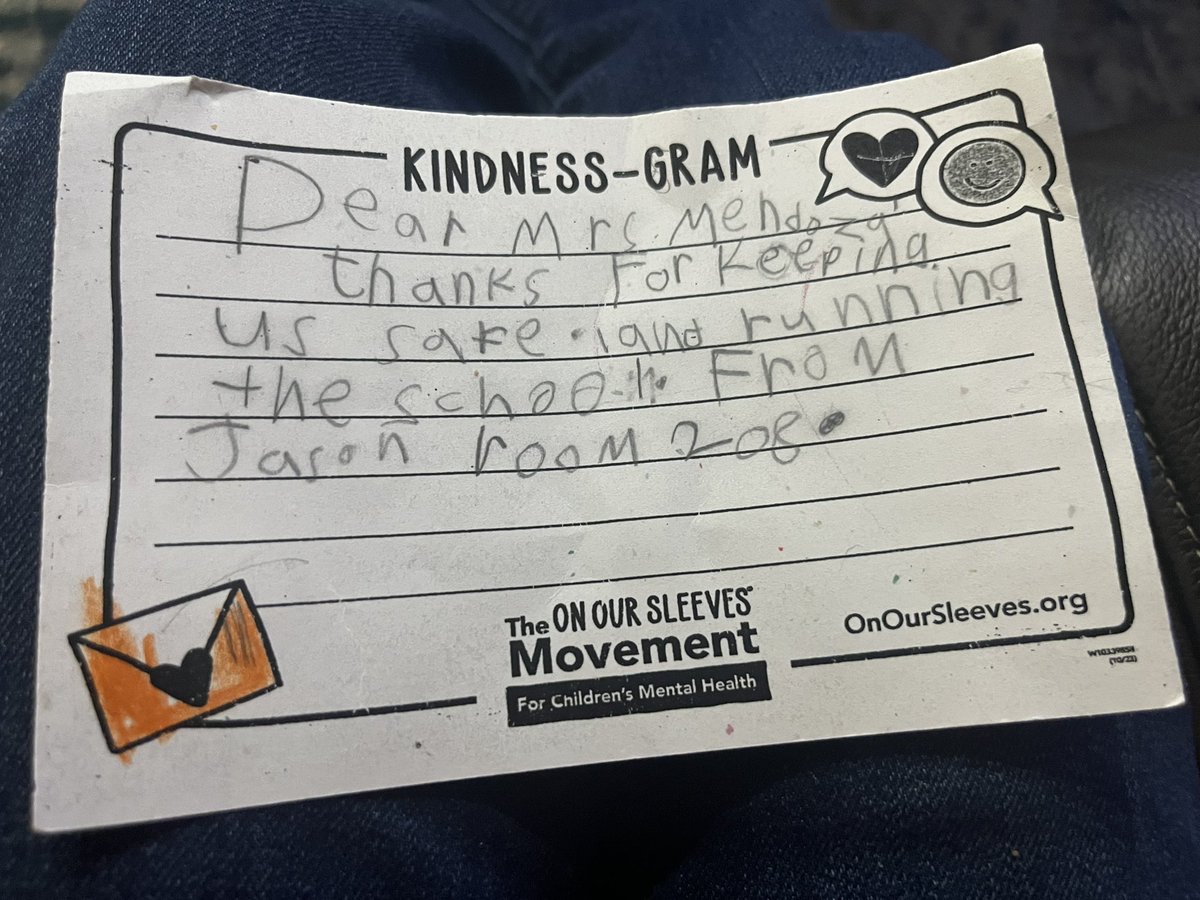 KINDNESS-GRAM
Dear Mrs. Mendoza
thanks For Keeping
us safe. and running
the school. From
Jason room 208.
The ON OUR SLEEVES®
Movement
For Children's Mental Health
OnOurSleeves.org
(10/23)